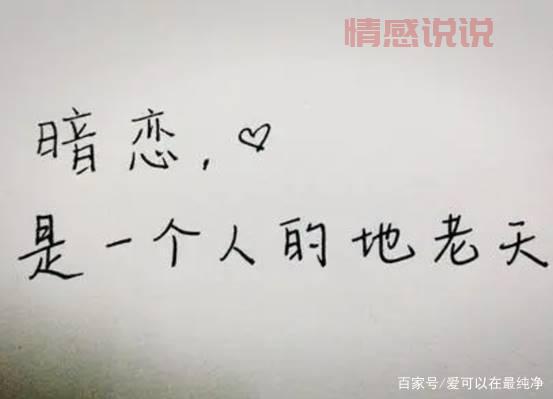 情感说说
暗恋，♡
是一个人的地老天
百家号/爱可以在最纯净